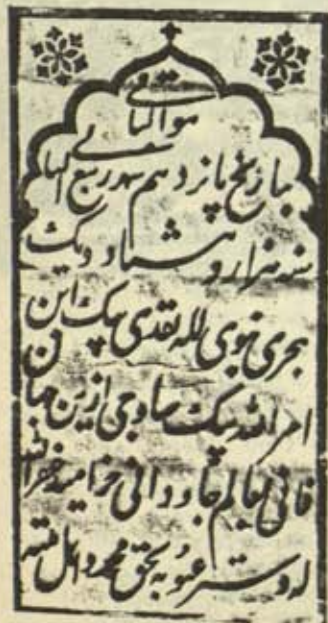 هو الباقی
بتاریخ پانزدهم شهر ربیع الثانی
سنه هزار و هشتاد و یک
هجری نبوی لله نقدی بیک ابن
امر الله بیک ساوجی ازین جهان
فانی بعالم جاودانی خرامید غفر الله
له و ستر عیوبه بحق محمد و اهل بیته